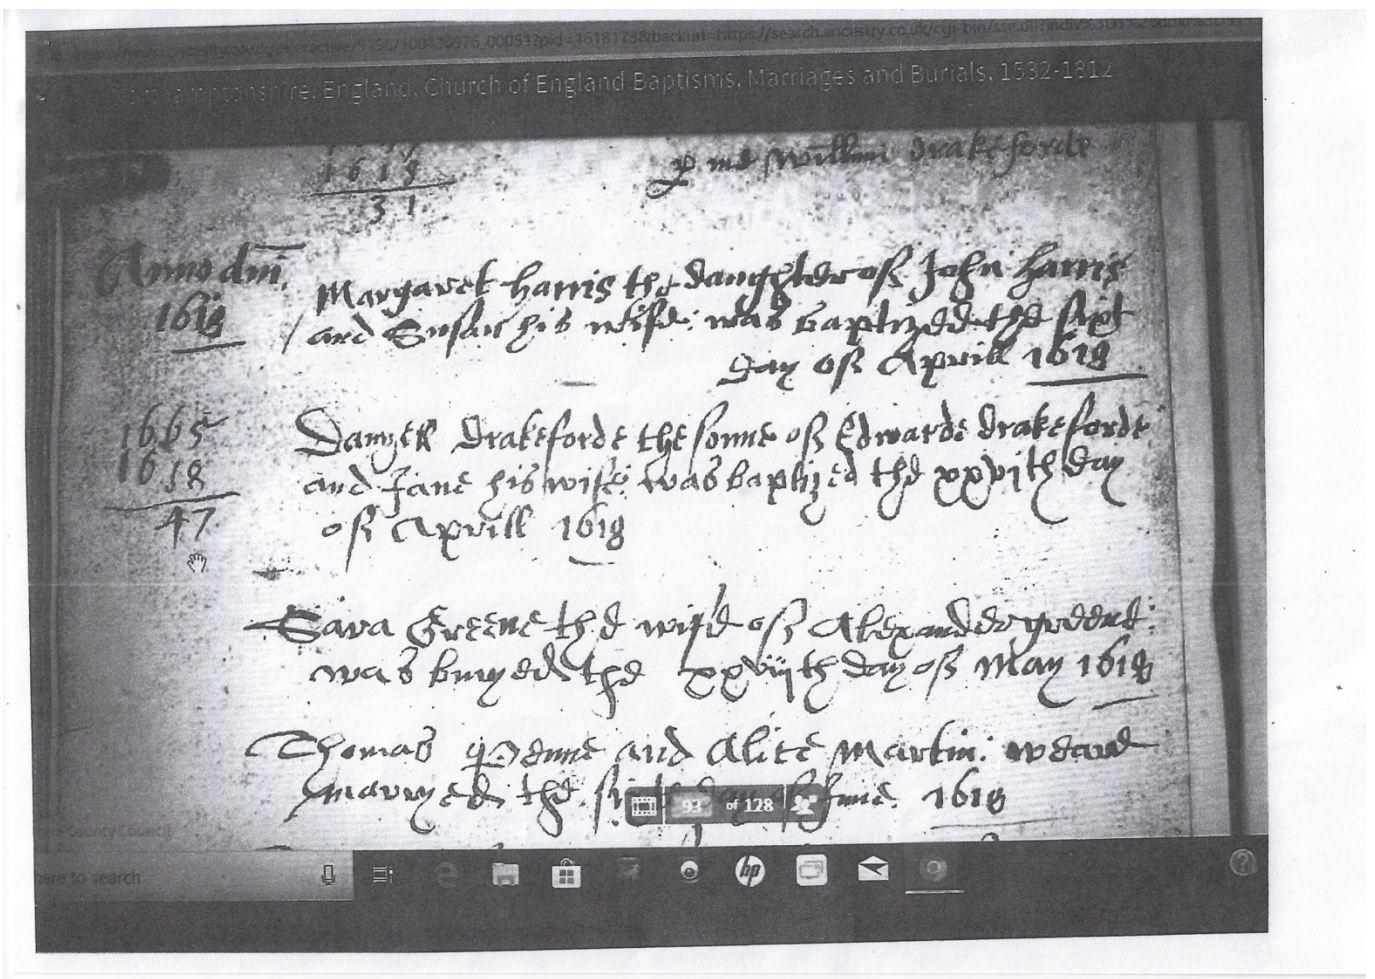 /interactive/9198/100430976_00091?pid=1618173&backurl=https://search.ancestry.co.uk/cgi-bin/sse.dll
England, Church of England Baptisms, Marriages and Burials, 1532-1812
1618
31
p me William Drakeforde
Anno dm̄.
1618
Margaret Harris the daughter of John Harris
and Susan his wife: was baptized the sixt
day of Aprill 1618
1665
1618
47
Daniell Drakeforde the sonne of Edwarde Drakeforde
and Jane his wife: was baptized the xxvith day
of Aprill 1618
Sara Greene the wife of Alexander greene:
was buryed the xxviith day of May 1618
Thomas and Alice Martin: weare
marryed the day of June. 1618
93 of 128
County Council
here to search
hp
?